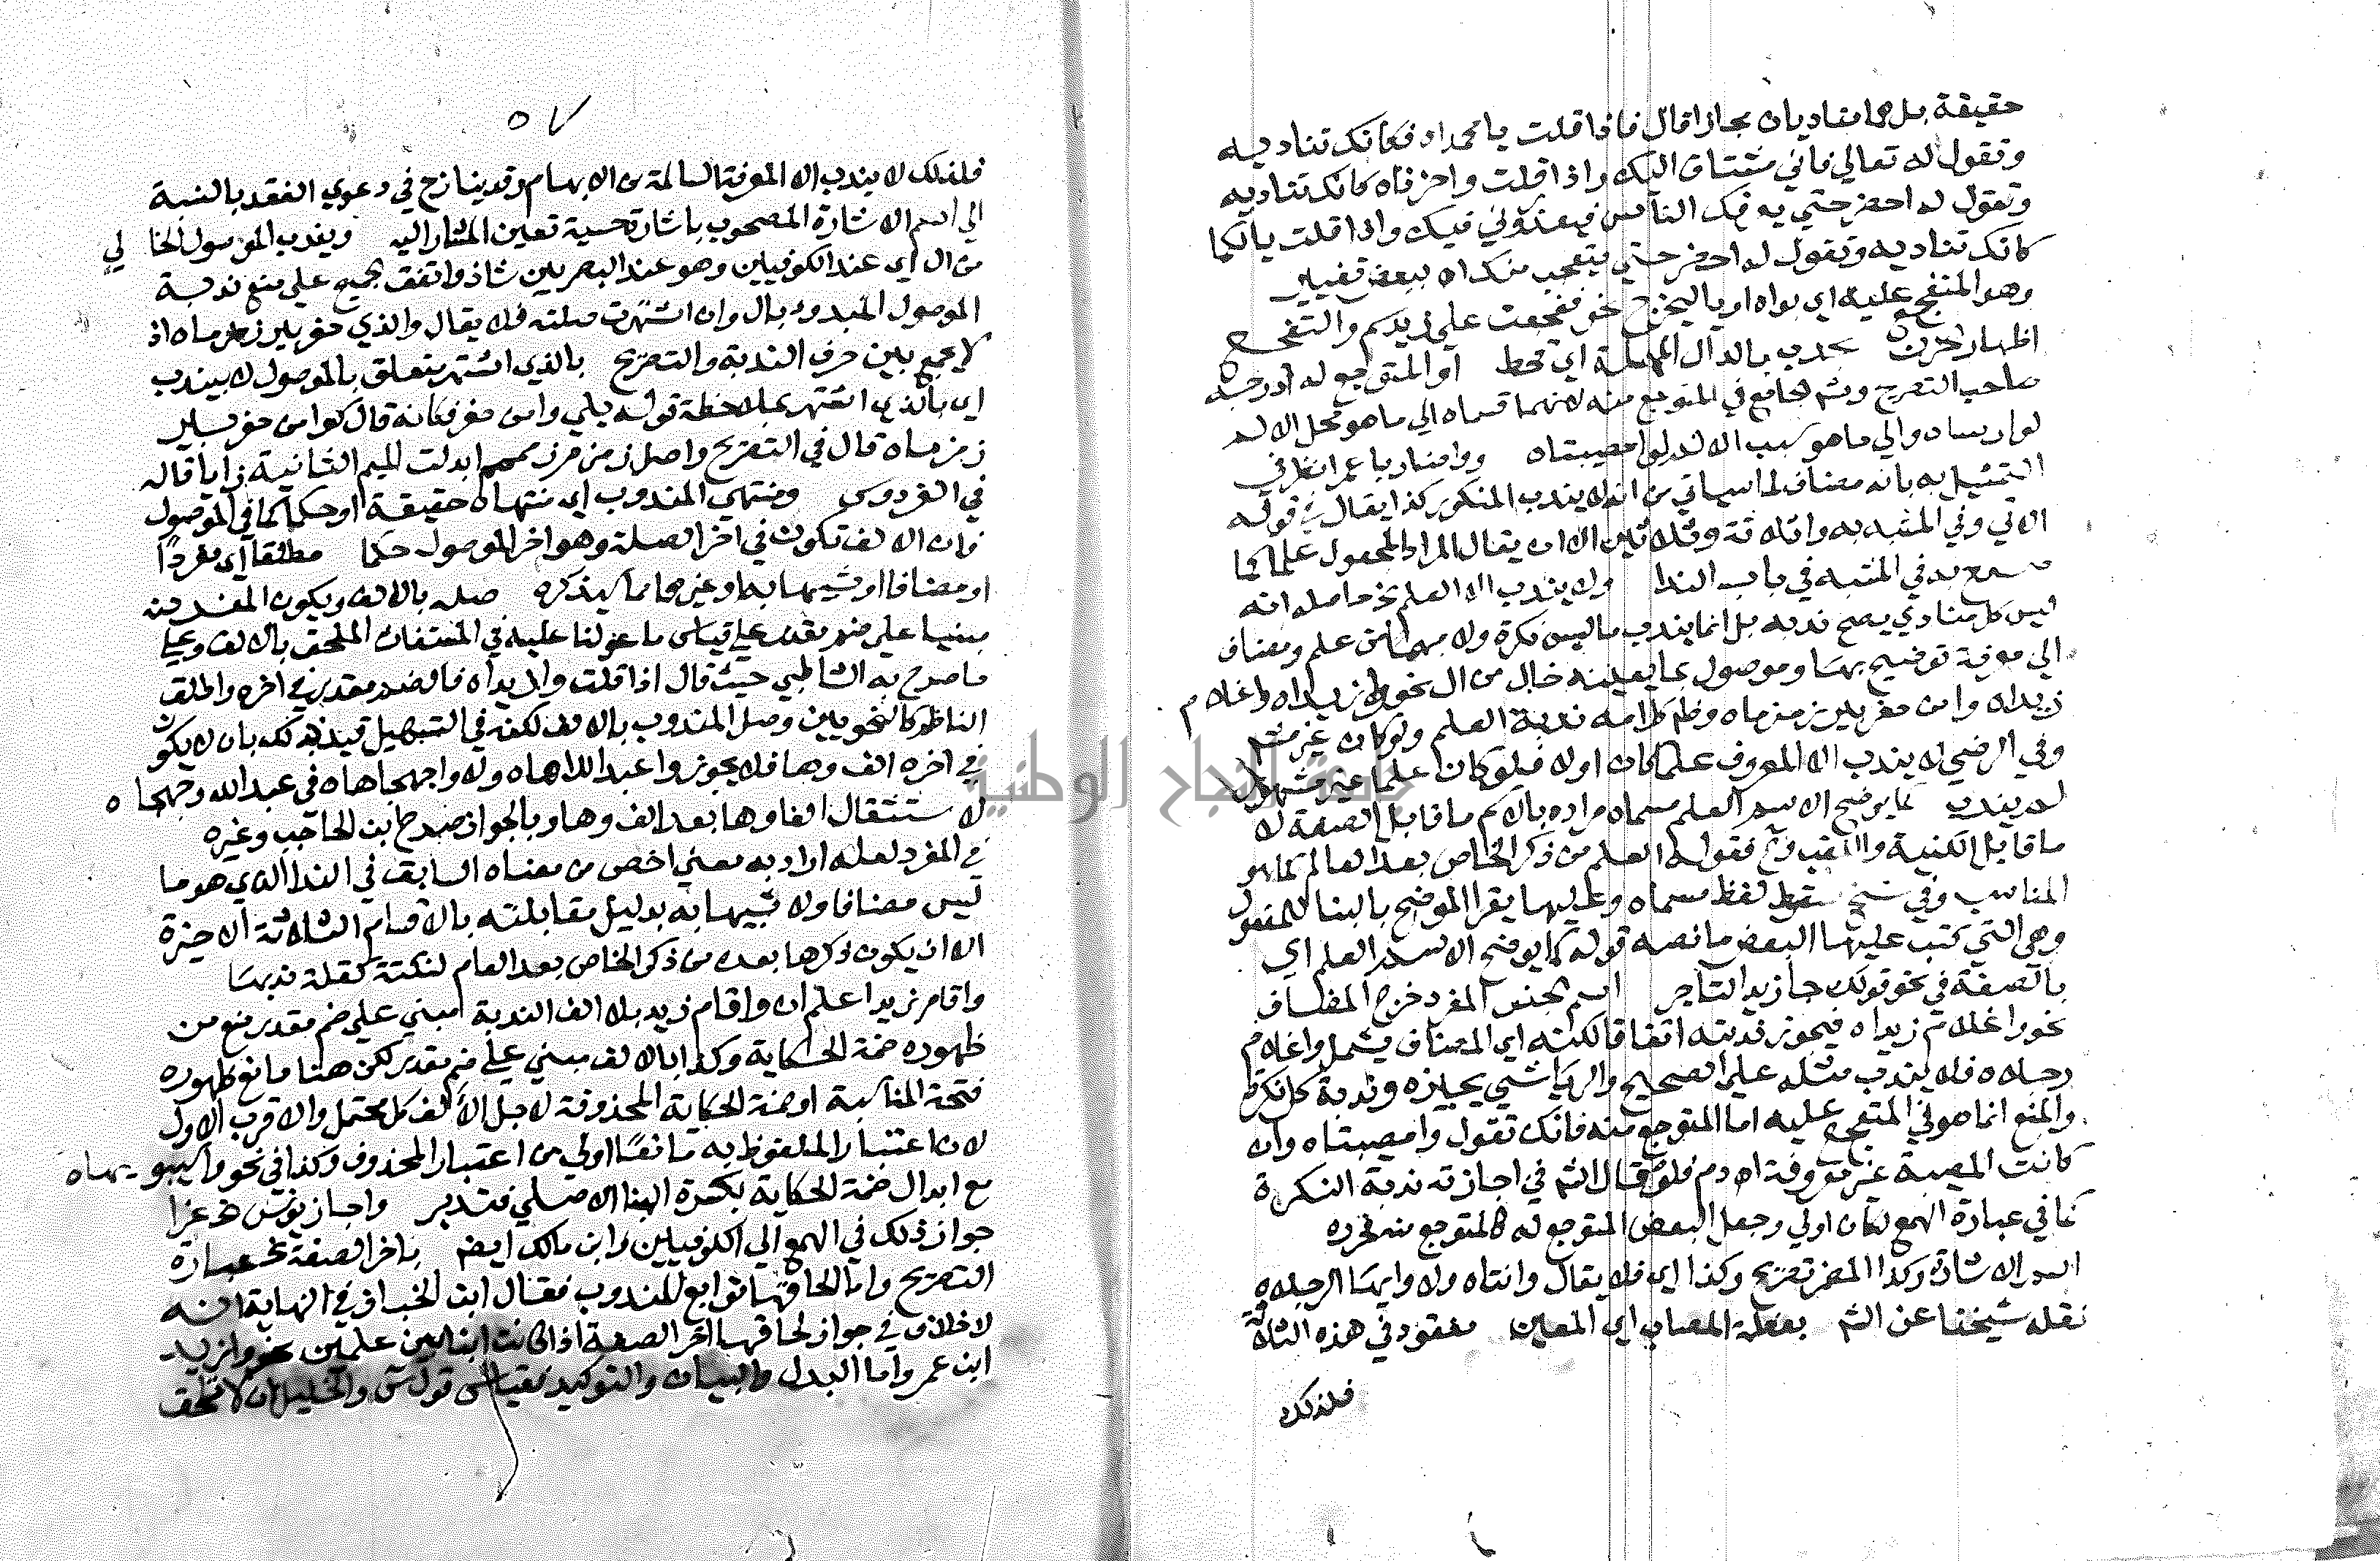 حقيقة بل هما مناديان مجازا قال فاذا قلت يا محمداه فكأنك تناديه
وتقول له تعالي فاني مشتاق اليك واذا قلت واحزناه كانك تناديه
وتقول له احضر حتي يعرفك الناس فيعذروني فيك واذا قلت يا لكما
كانك تناديه وتقول له احضر حتي يتعجب منك اه ببعض تغيير
وهو المتفجع عليه اي بواه او يا ليخرج نحو تفجعت علي زيدكم والتفجع
اظهار الحزن بجدب بالدال المهملة اي قحط او المتوجع له ادرجه
صاحب التصريح وشم لجامع في المتوجع منه لانهما قسماه الي ما هو محل الالم
لوا رساه والي ما هو سبب الالم لوا مصيبتاه ووامن يا عمرا نظر في
التمثيل به بانه مضاف لما سياتي من انه لا يندب المنكور كذا يقال في قوله
الاتي وفي المشبه به واثلاثة وثلاثين الا ان يقال المراد المجعول علما كما
صرح به في المشبه في باب الندا ولا يندب الا العلم نحو حاصله انه
ليس كل منادي يصح ندبه بل انما يندب ما ليس نكرة ولا مبهما من علم ومضاف
الي معرفة توضيح بها وموصول بما يعينه خال من ال نحو وا زيداه وا غلام
زيداه وا من حفر بير زمزماه وظم كلامه ندبة العلم ولو كان غير مشهور
وفي الرضي لا يندب الا المعروف علما كان اولا فلو كان علما غير مشهور
لم يندب كما يوضح الاسم العلم مسماه مراده بالاسم ما قابل الصفة لا
ما قابل الكنية واللقب وثم فقوله العلم من ذكر الخاص بعد العام كما هو
المناسب وفي نسخ سقوط لفظ مسماه وعليها يقرا الموضح بالبنا للمفعول
وهي التي كتب عليها البعض ما نصه قوله كما يوضح الاسم العلم اي
بالصفة في نحو قولك جا زيد التاجر اسم الجنس المفرد خرج المضاف
نحو وا غلام زيداه فيجوز ندبته اتفاقا لكنه اي المضاف يشمل وا غلام
رجلاه فلا يندب مثله علي الصحيح والرياشي يجيزه وندبة كل نكرة
والمنع انما هو في المتفجع عليه اما المتوجع منه فانك تقول وا مصيبتاه وان
كانت المصيبة غير معروفة اه دم فلو قال الشم في اجازته ندبة النكرة
كما في عبارة الهمع لكان اولي وجعل البعض المتوجع له كالمتوجع منه فحرره
اسم الاشارة وكذا المضمر تصريح وكذا اي فلا يقال وا انتاه ولا وا ايها الرجلاه
نقله شيخنا عن الشم بعظة المصاب اي المعين مفقود في هذه الثلاثة
فلذلك
٥٧
فلذلك لا يندب الا المعرفة السالمة من الابهام وقد ينازع في دعوي الفقد بالنسبة
الي اسم الاشارة المصحوب باشارة حسية تعين المشار اليه ويندب الموصول الخالي
من ال اي عند الكوفيين وهو عند البصريين شاذ واتفق الجميع علي منع ندبة
الموصول المبدوء بال وان اشتهرت صلته فلا يقال والذي حفر بير زمزماه اذ
لا يجمع بين حرف الندبة وال تصريح بالذي اشتهر متعلق بالموصول لا بيندب
اي بالذي اشتهر بملاحظة قوله يلي وا من حفر فكانه قال كوا من حفر بير
زمزماه قال في التصريح واصل زمزم زمم ابدلت الميم الثانية زايا قاله
في الفردوس ومنتهي المندوب اي منتهاه حقيقة او حكما كما في الموصول
فان الالف تكون في اخر الصلة وهو اخر الموصول حكما مطلقا اي مفردا
او مضافا او شبيها به او غيرهما مما يذكره صله بالالف ويكون المفرد منه
مبنيا علي ضم مقدر علي قياس ما عولنا عليه في المستغاث الملحق بالالف وعليه
ما صرح به الشاطبي حيث قال اذا قلت وا زيداه فالضم مقدر في اخره واطلق
الناظم كالنحويين وصل المندوب بالالف لكنه في التسهيل قيد ذلك بان لا يكون
في اخره الف وها فلا يجوز وا عبد اللاهاه ولا وا جهجاهاه في عبد الله وجهجاه
لاستثقال الفا وها بعد الف وها وبالجواز صرح ابن الحاجب وغيره
في المفرد لعله اراد به معني اخص من معناه السابق في الندا الذي هو ما
ليس مضافا ولا شبيها به بدليل مقابلته بالاقسام الثلاثة الاخيرة
الا ان يكون ذكرها بعده من ذكر الخاص بعد العام لنكتة كقلة ندبها
وا قام زيدا علم ان وا قام زيد بلا الف الندبة مبني علي ضم مقدر منع من
ظهوره ضمة الحكاية وكذا بالالف مبني علي ضم مقدر لكن هنا مانع ظهوره
فتحة المناسبة او ضمة الحكاية المحذوفة لاجل الالف كل محتمل والاقرب الاول
لان اعتبار الملفوظ به مانعا اولي من اعتبار المحذوف وكذا في نحو وا سيبويهاه
مع ابدال ضمة الحكاية بكسرة البنا الاصلي فتدبر واجاز يونس نحو عزا
جواز ذلك في الهمع الي الكوفيين وابن مالك ايضم باخر الصفة نحو عبارة
التصريح واما الحاقها توابع المندوب فقال ابن الخباز في النهاية انه
لا خلاف في جواز لحاقها اخر الصفة اذا كانت ابنا بين علمين نحو وا زيد
ابن عمرو واما البدل والبيان والتوكيد فقياس قول س والخليل ان لا تلحق